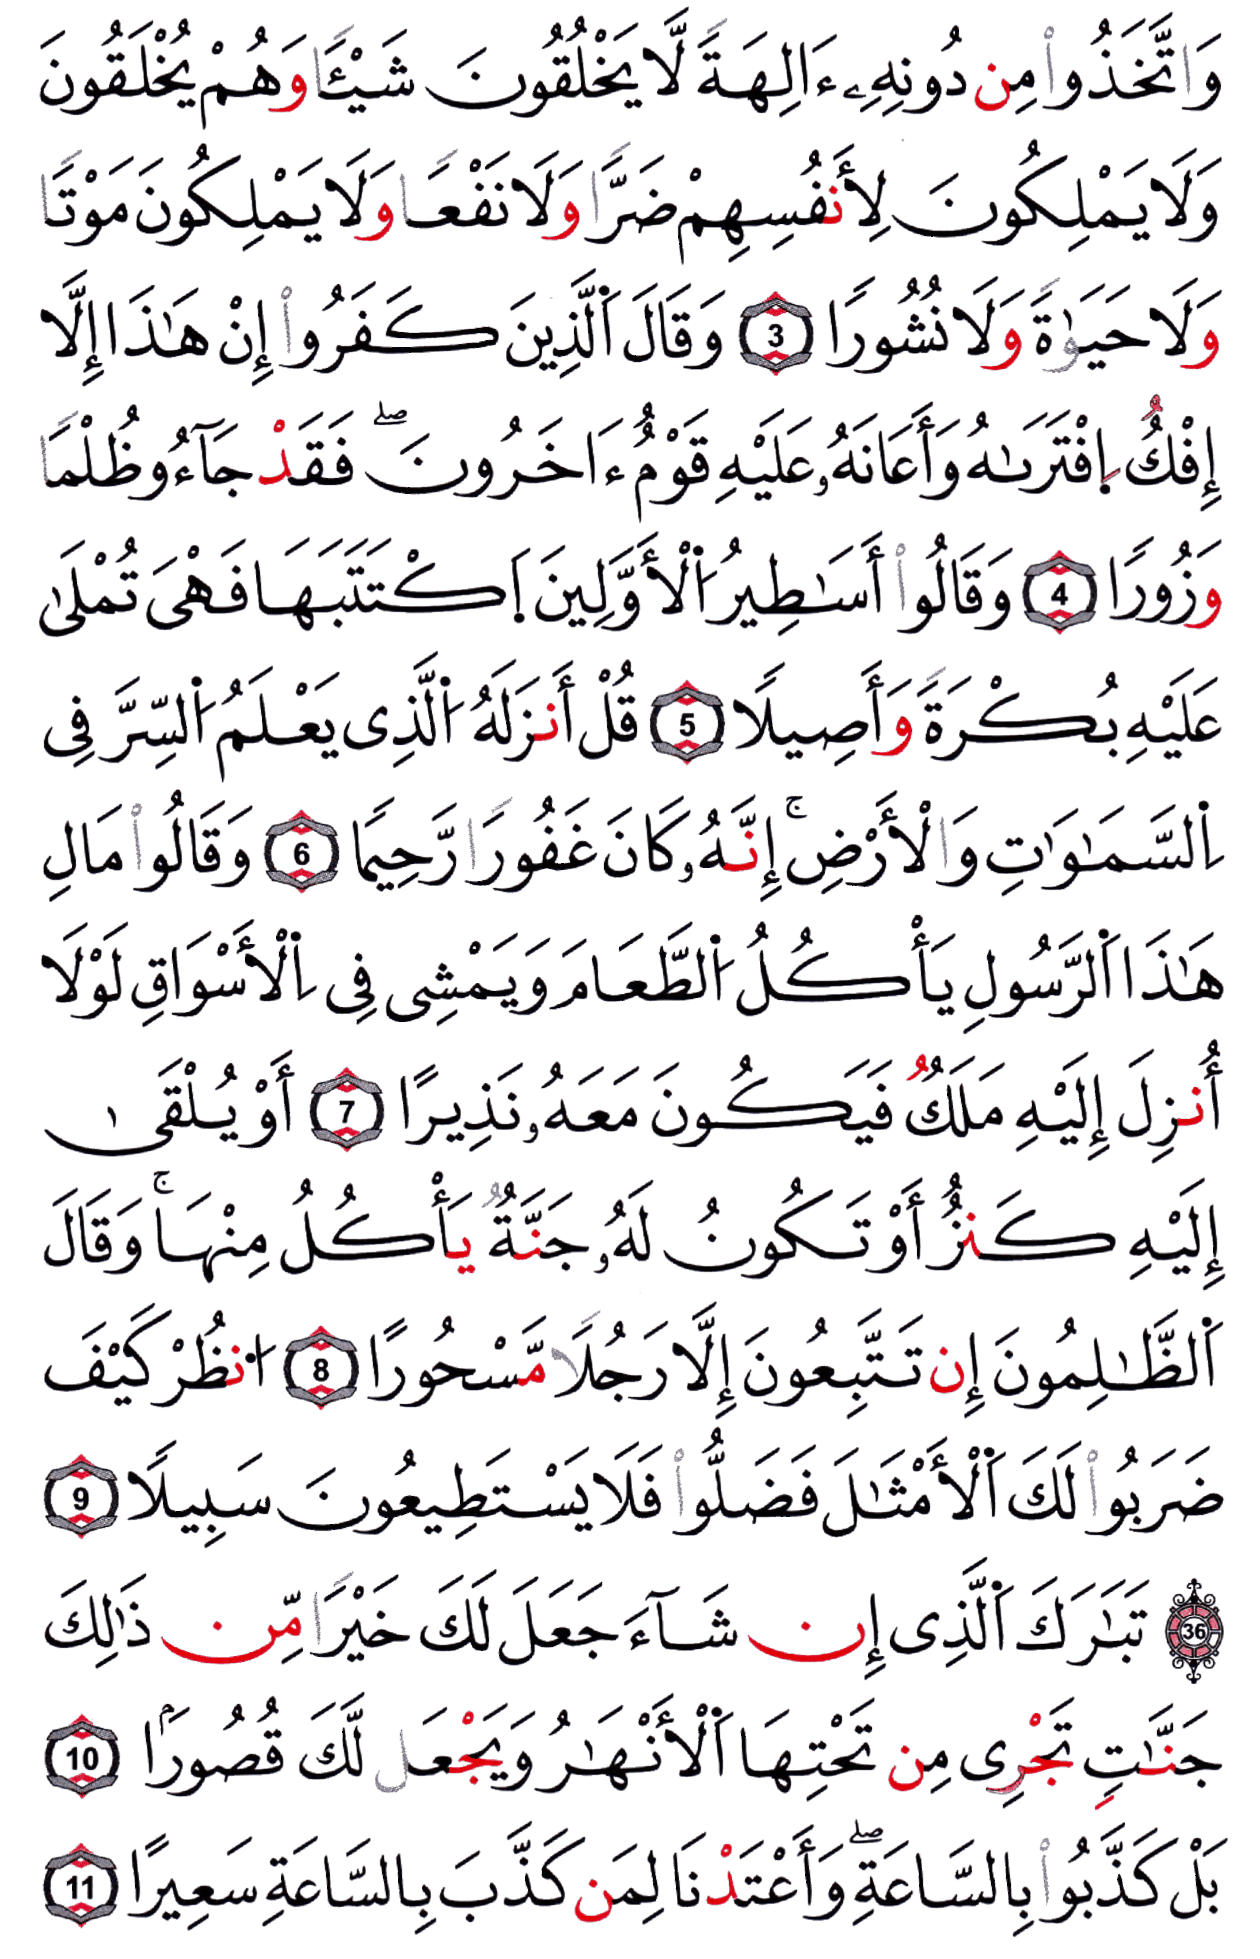 وَاتَّخَذُواْ مِن دُونِهِۦٓ ءَالِهَةً لَّا يَخْلُقُونَ شَيْـًٔا وَهُمْ يُخْلَقُونَ
وَلَا يَمْلِكُونَ لِأَنفُسِهِمْ ضَرًّا وَلَا نَفْعًا وَلَا يَمْلِكُونَ مَوْتًا
وَلَا حَيَوٰةً وَلَا نُشُورًا 3 وَقَالَ اَ۬لَّذِينَ كَفَرُواْ إِنْ هَٰذَا إِلَّا
إِفْكٌ اِ۪فْتَرَىٰهُ وَأَعَانَهُۥ عَلَيْهِ قَوْمٌ ءَاخَرُونَۖ فَقَدْ جَآءُو ظُلْمًا
وَزُورًا 4 وَقَالُواْ أَسَٰطِيرُ اُ۬لْأَوَّلِينَ اَ۪كْتَتَبَهَا فَهْىَ تُمْلَىٰ
عَلَيْهِ بُكْرَةً وَأَصِيلًا 5 قُلْ أَنزَلَهُ اُ۬لَّذِى يَعْلَمُ اُ۬لسِّرَّ فِى
اِ۬لسَّمَٰوَٰتِ وَالْأَرْضِۚ إِنَّهُۥ كَانَ غَفُورًا رَّحِيمًا 6 وَقَالُواْ مَالِ
هَٰذَا اَ۬لرَّسُولِ يَأْكُلُ اُ۬لطَّعَامَ وَيَمْشِى فِى اِ۬لْأَسْوَاقِ لَوْلَا
أُنزِلَ إِلَيْهِ مَلَكٌ فَيَكُونَ مَعَهُۥ نَذِيرًا 7 أَوْ يُلْقَىٰ
إِلَيْهِ كَنزٌ أَوْ تَكُونُ لَهُۥ جَنَّةٌ يَأْكُلُ مِنْهَاۚ وَقَالَ
اَ۬لظَّٰلِمُونَ إِن تَتَّبِعُونَ إِلَّا رَجُلًا مَّسْحُورًا 8 اَ۟نظُرْ كَيْفَ
ضَرَبُواْ لَكَ اَ۬لْأَمْثَٰلَ فَضَلُّواْ فَلَا يَسْتَطِيعُونَ سَبِيلًا 9
36 تَبَٰرَكَ اَ۬لَّذِى إِن شَآءَ جَعَلَ لَكَ خَيْرًا مِّن ذَٰلِكَ
جَنَّٰتٍ تَجْرِى مِن تَحْتِهَا اَ۬لْأَنْهَٰرُ وَيَجْعَل لَّكَ قُصُورًۢا 10
بَلْ كَذَّبُواْ بِالسَّاعَةِۖ وَأَعْتَدْنَا لِمَن كَذَّبَ بِالسَّاعَةِ سَعِيرًا 11